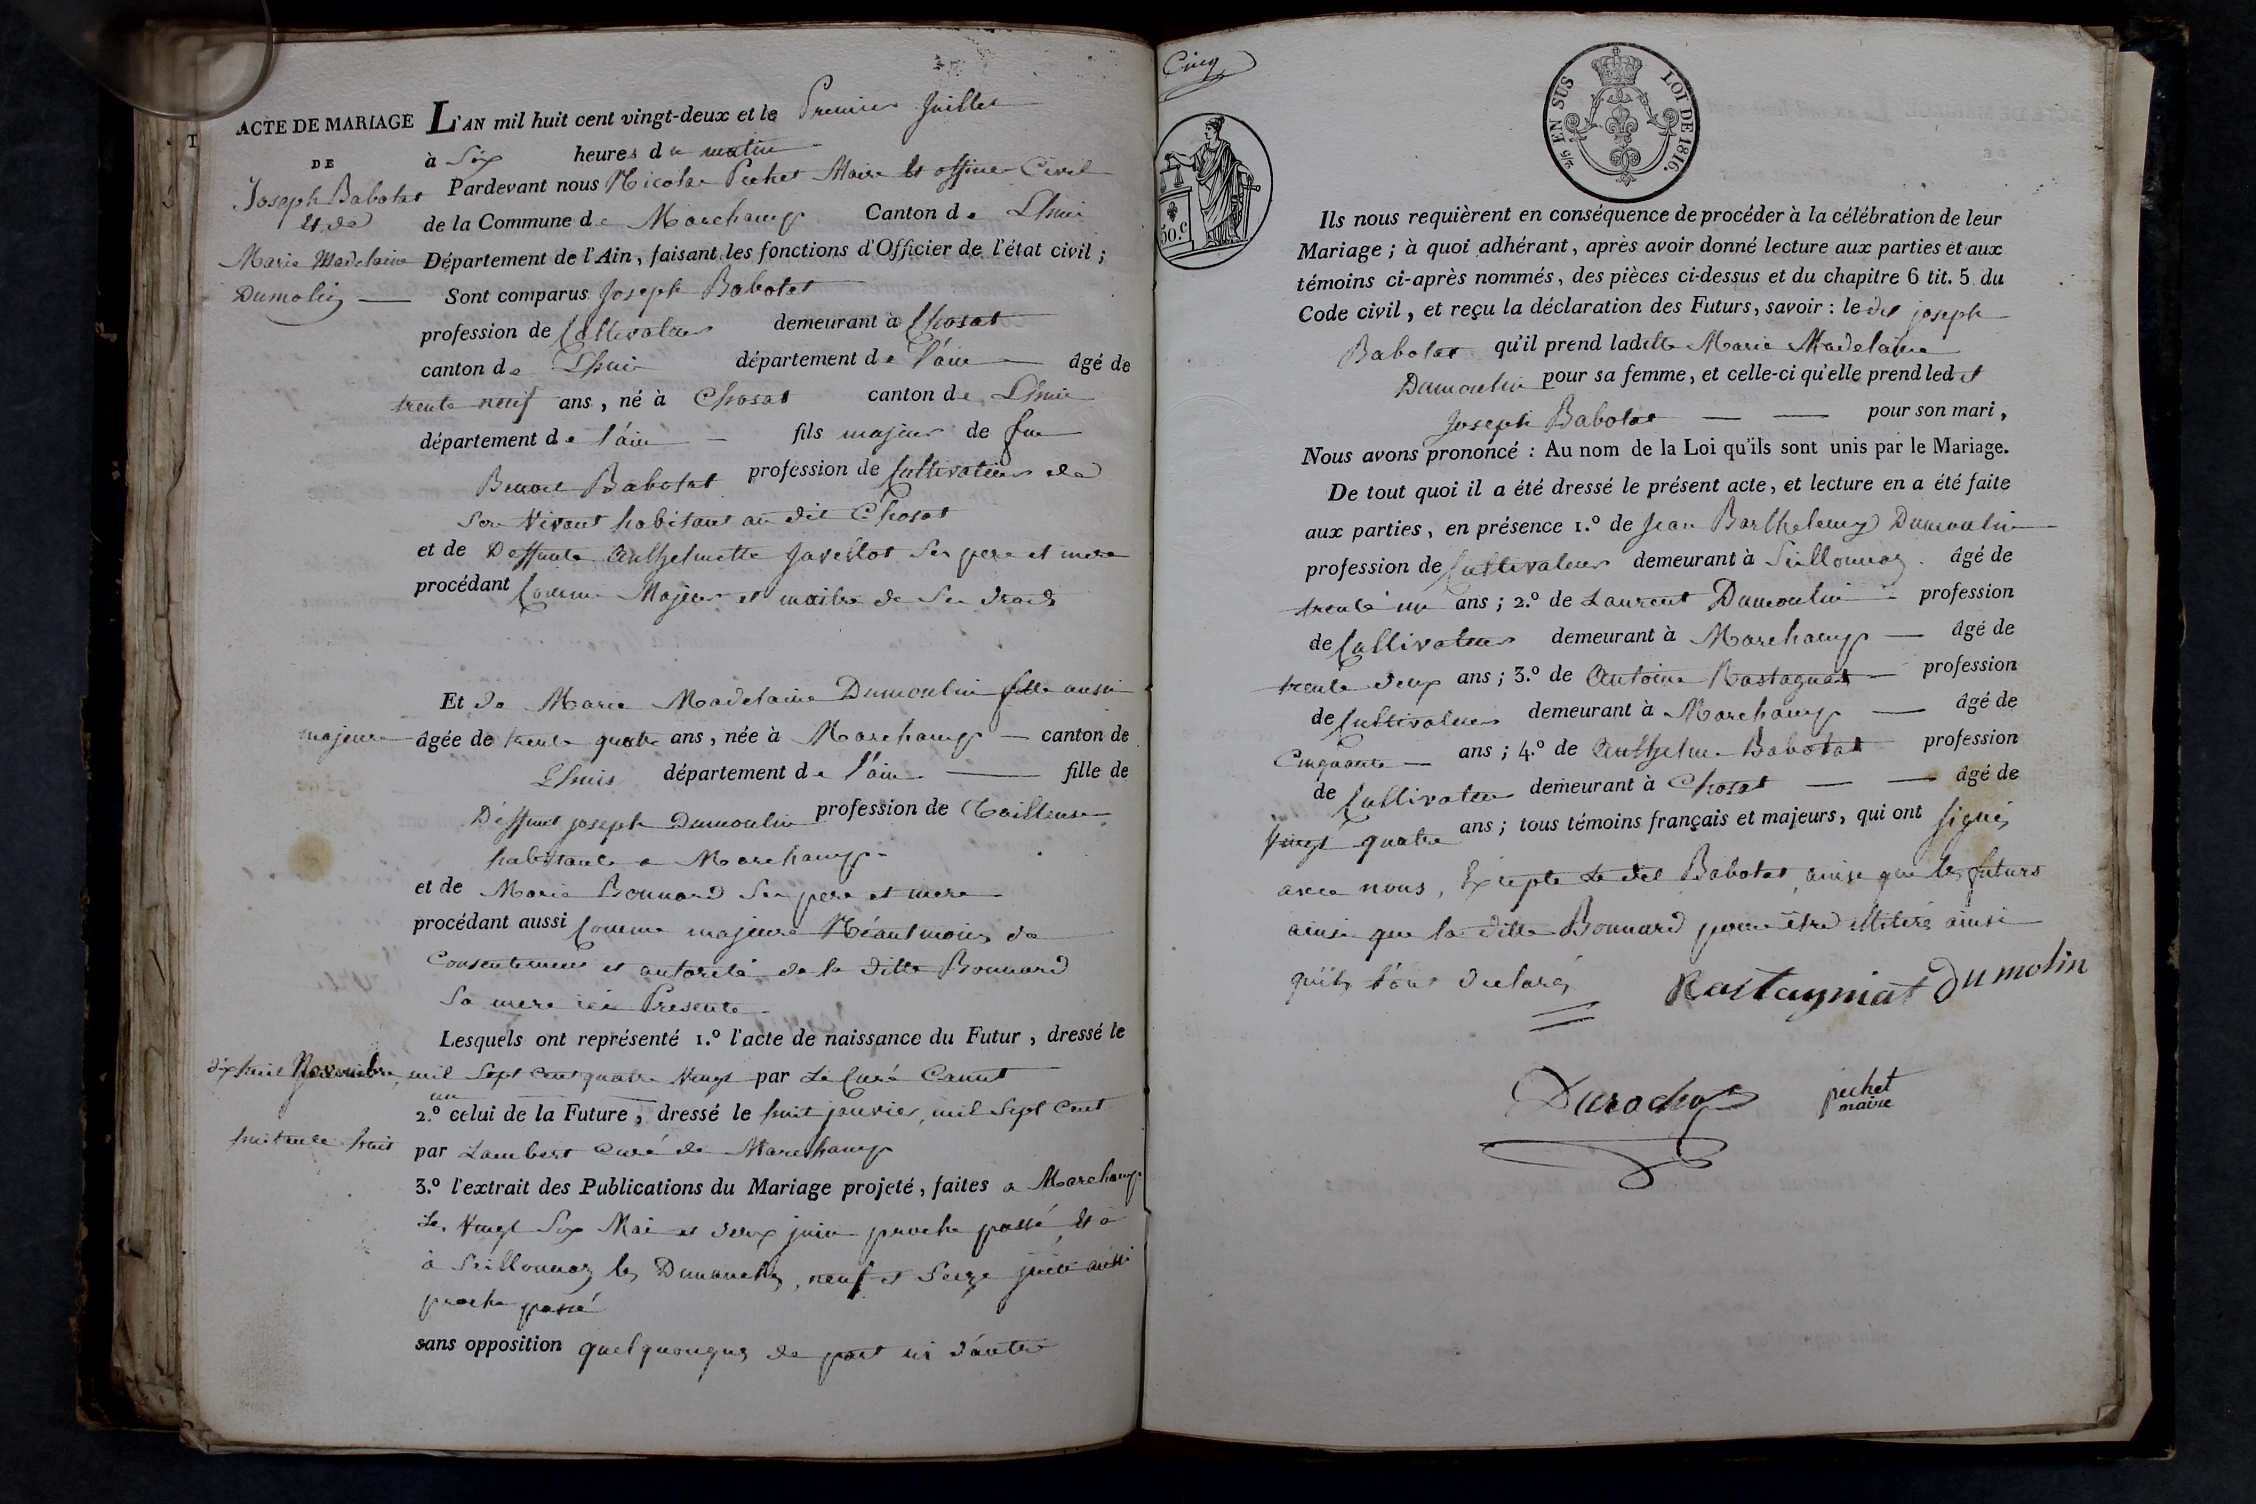 ACTE DE MARIAGE
DE
Joseph Babolat
et de
Marie Madelaine
Dumolin
L'AN mil huit cent vingt-deux et le Premier Juillet
à Six heures du matin
Pardevant nous Nicolas Pechet Maire et officier Civil
de la Commune de Marchamp Canton de Lhuis
Département de l'Ain, faisant les fonctions d'Officier de l'état civil ;
Sont comparus Joseph Babolat
profession de Cultivateur demeurant à Chosat
canton de Lhuis département de l'ain âgé de
trente neuf ans, né à Chosat canton de Lhuis
département de l'ain fils majeur de feu
Benoit Babolat profession de Cultivateur de
Son Vivant habitant au dit Chosat
et de Deffunte Anthelmette Ses pere et mere
procédant Comme Majeur et maitre de Ses droits
Et de Marie Madelaine Dumoulin fille aussi
majeure âgée de trente quatre ans, née à Marchamp canton de
Lhuis département de l'ain fille de
Déffunt joseph Dumoulin profession de Tailleur
habitant a Marchamp
et de Marie Bonnard Ses pere et mere
procédant aussi Comme majeure Néantmoins de
Consentement et autorité de la ditte Bonnard
Sa mere ici Presente
Lesquels ont représenté 1.º l'acte de naissance du Futur, dressé le
dix huit Novembre mil Sept Cent quatre Vingt par Le Curé
un
2.º celui de la Future, dressé le huit janvier, mil Sept Cent
huitante huit par Lambert Curé de Marchamp
3.º l'extrait des Publications du Mariage projeté, faites a Marchamp
Le Vingt Six Mai et deux juin proche passé, Et à
à Seillonnaz les Dimanches, neuf et Seize juin aussi
proche passé
sans opposition quelquonques de part ni d'autre
Cinq
50.c
2/5 EN SUS LOI DE 1816.
Ils nous requièrent en conséquence de procéder à la célébration de leur
Mariage ; à quoi adhérant, après avoir donné lecture aux parties et aux
témoins ci-après nommés, des pièces ci-dessus et du chapitre 6 tit. 5 du
Code civil, et reçu la déclaration des Futurs, savoir : le dit joseph
Babolat qu'il prend ladite Marie Madelaine
Dumoulin pour sa femme, et celle-ci qu'elle prend ledit
Joseph Babolat pour son mari,
Nous avons prononcé : Au nom de la Loi qu'ils sont unis par le Mariage.
De tout quoi il a été dressé le présent acte, et lecture en a été faite
aux parties, en présence 1.º de Jean Barthelemy Dumoulin
profession de Cultivateur demeurant à Seillonnaz âgé de
trente un ans ; 2.º de Laurent Dumoulin profession
de Cultivateur demeurant à Marchamp âgé de
trente deux ans ; 3.º de Antoine Rastagnat profession
de Cultivateur demeurant à Marchamp âgé de
Cinquante ans ; 4.º de Anthelme Babolat profession
de Cultivateur demeurant à Chosat âgé de
Vingt quatre ans ; tous témoins français et majeurs, qui ont signés
avec nous, Excepte Le dit Babolat, ainsi que les futurs
ainsi que la ditte Bonnard pour être illiteré ainsi
qu'ils l'ont declaré
Rastagniat Dumolin
pechet
maire